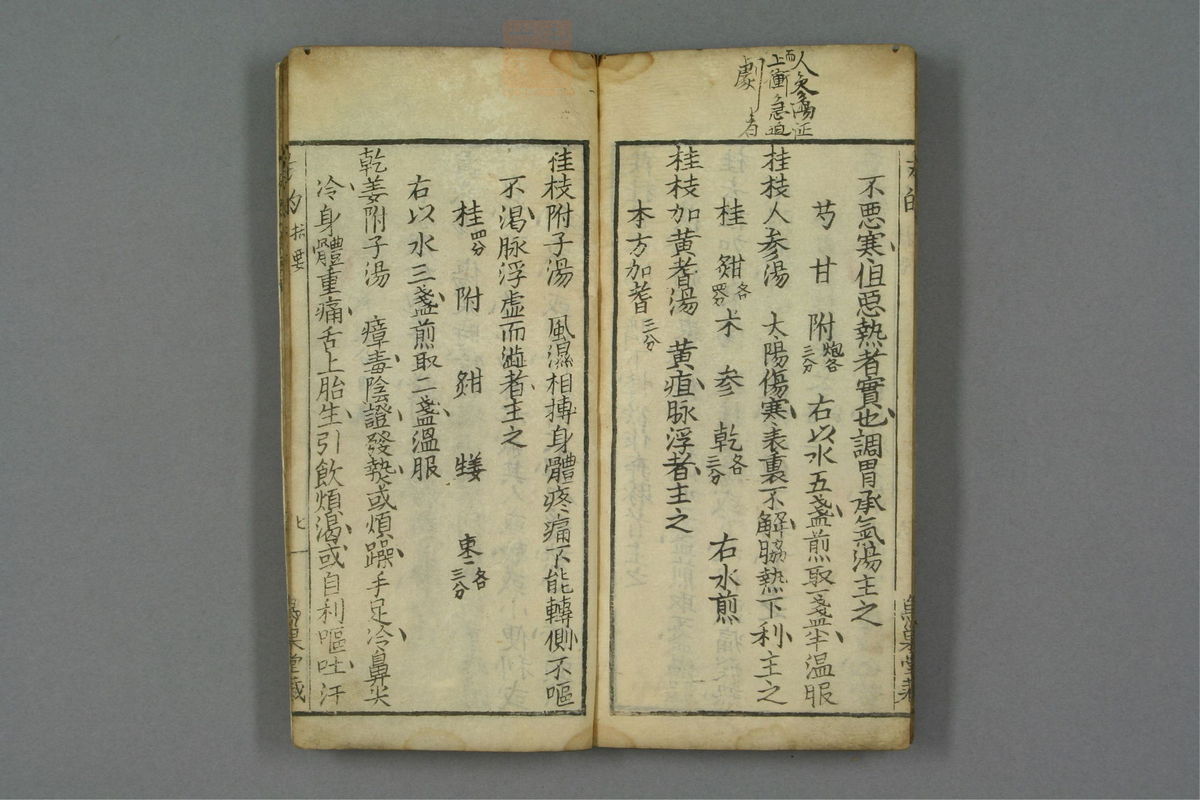 人参湯証
而上衝急迫
劇者
不悪寒但惡熱者實也調胃承氣湯主之
芍 甘 附炮各三分 右以水五盞煎取一盞半温服
桂枝人参湯 太陽傷寒表裏不解脇熱下利主之
桂 甜各四分 朮 参 乾各三分 右水煎
桂枝加黄耆湯 黄疸脉浮者主之
本方加耆三分
桂枝附子湯 風濕相搏身體疼痛不能轉側不嘔
不渇脉浮虚而澁者主之
桂四分 附 甜 棗二各三分
右以水三盞煎取二盞温服
乾姜附子湯 瘴毒陰證發熱或煩躁手足冷鼻尖
冷身體重痛舌上胎生引飲煩渇或自利嘔吐汗